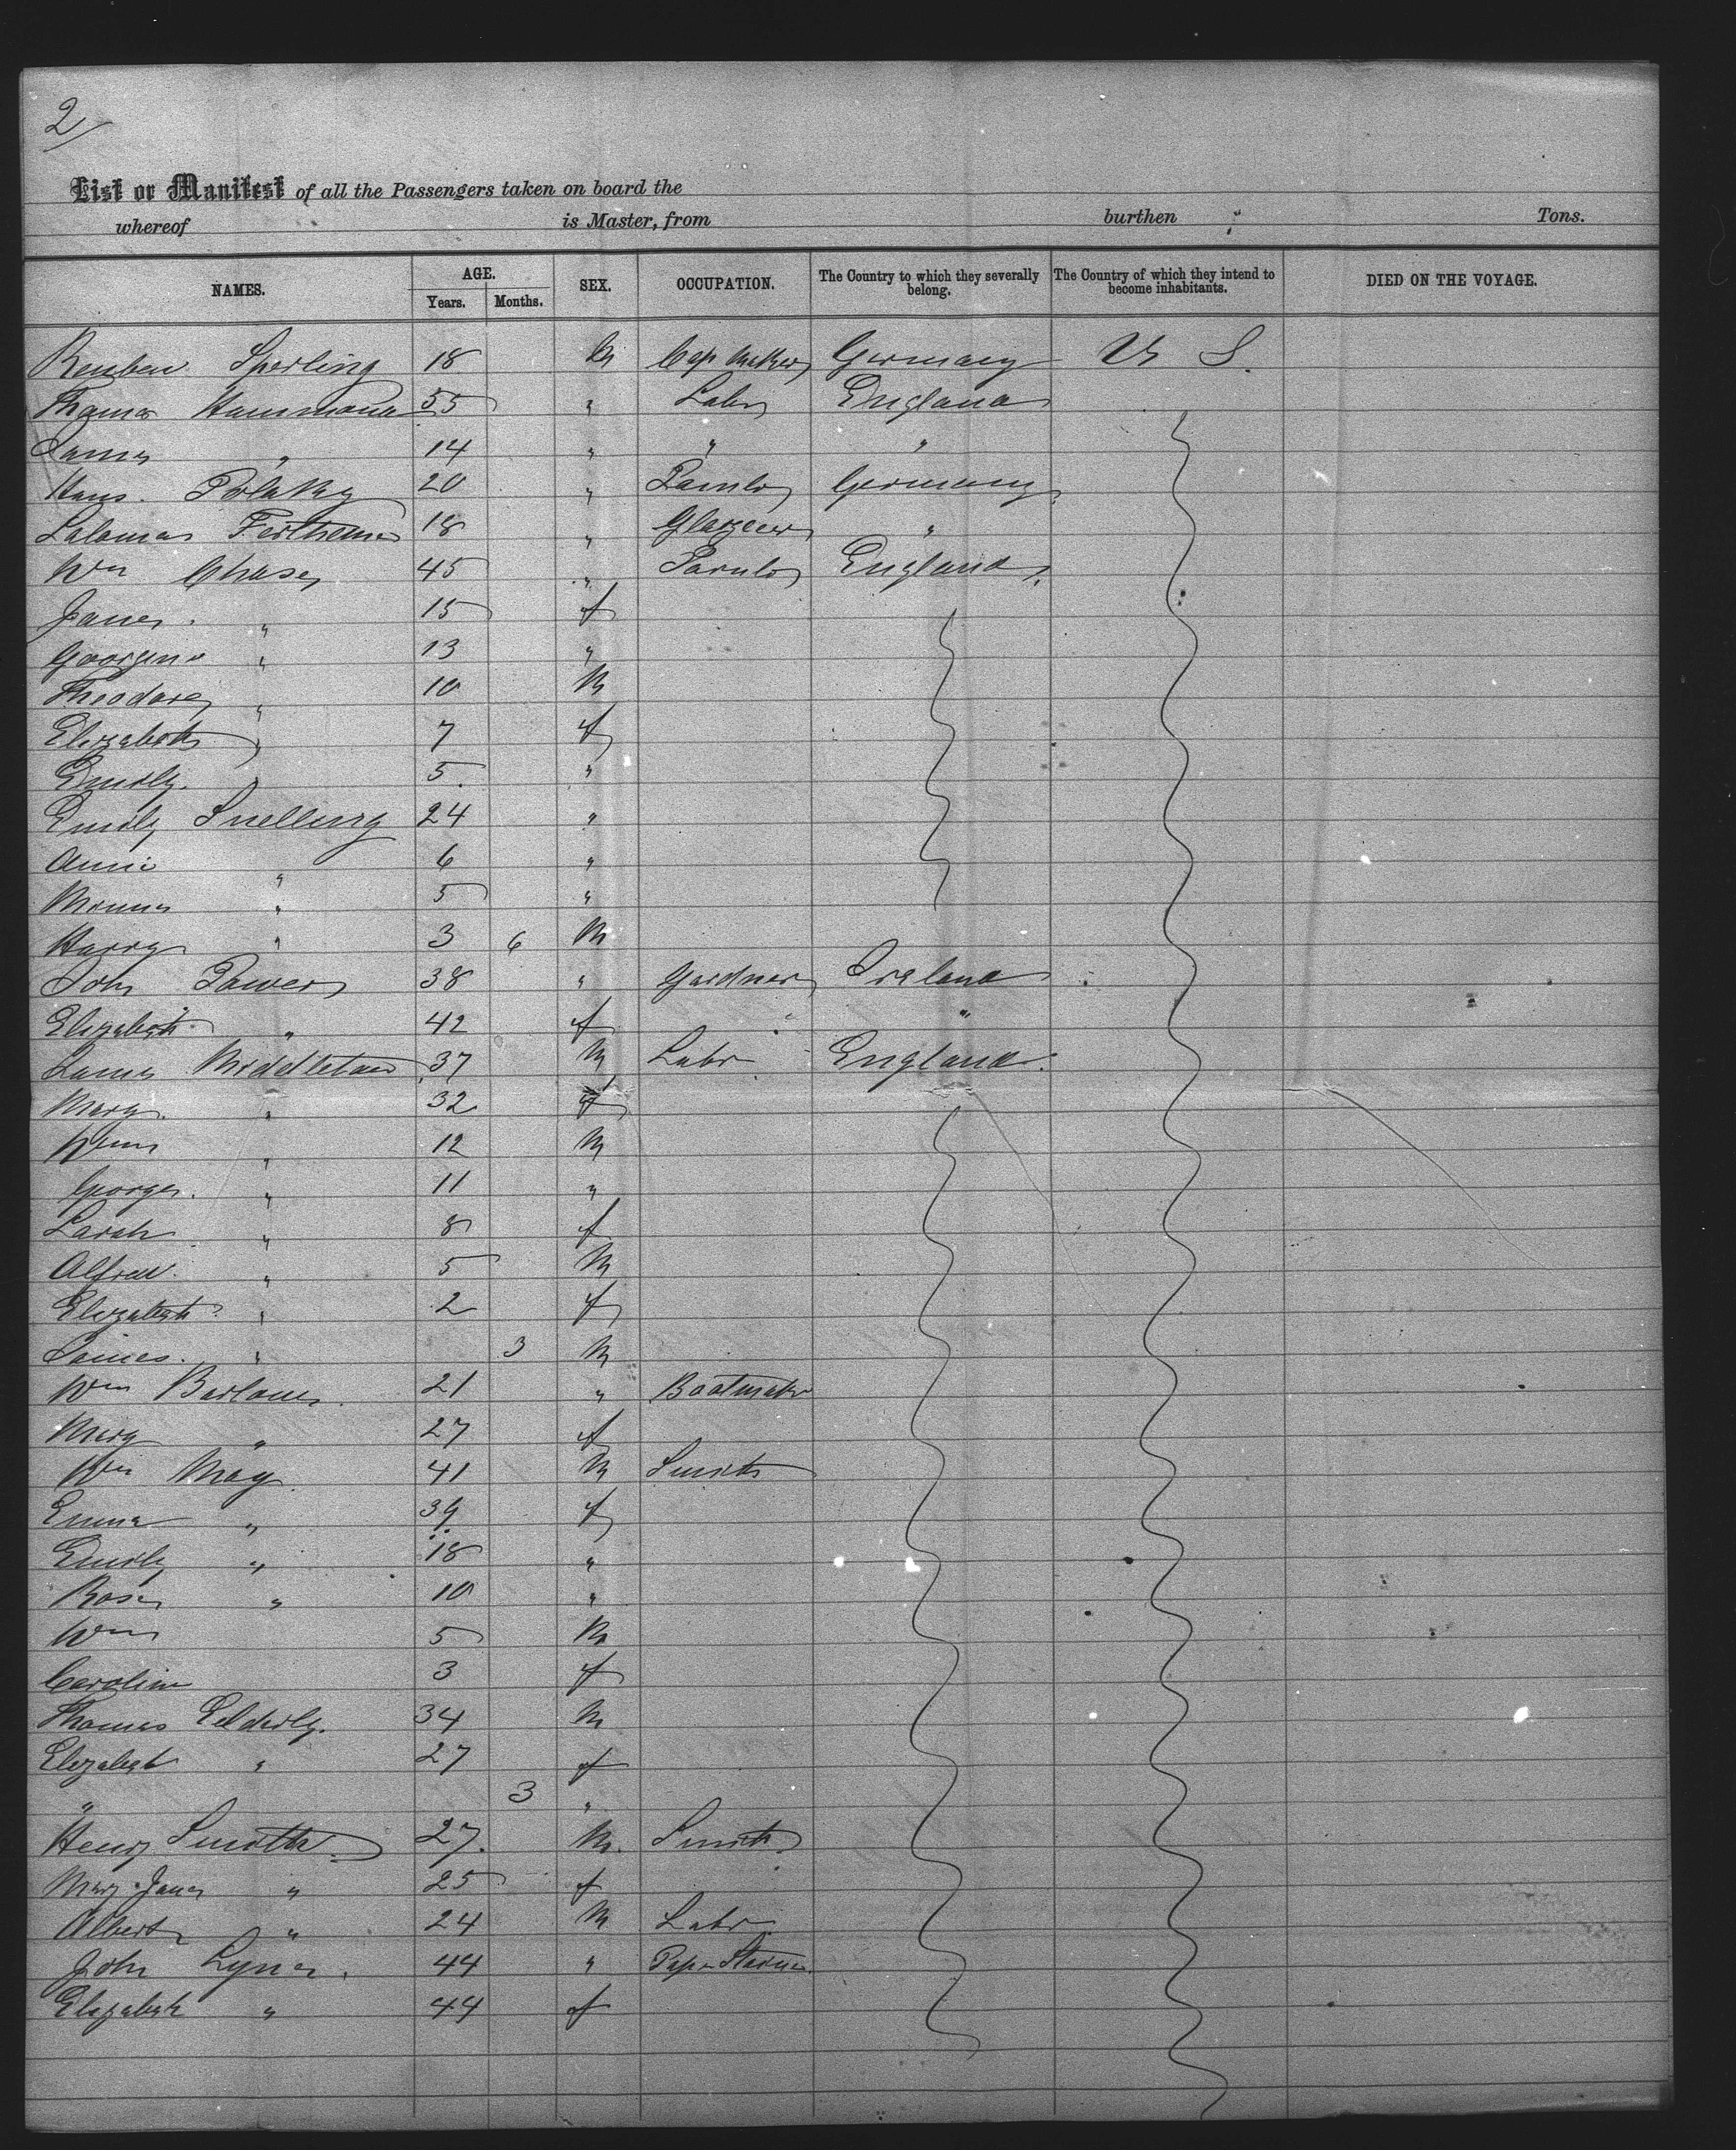 2/
List or Manifest of all the Passengers taken on board the
whereof is Master, from burthen Tons.
NAMES. AGE. Years. Months. SEX. OCCUPATION. The Country to which they severally belong. The Country of which they intend to become inhabitants. DIED ON THE VOYAGE.
Reuben Sperling 18 M Cap Maker Germany U S.
Thomas Hammond 55 " Labr England
James " 14 " " "
Hans. 20 " Germany
18 " "
Wm Chase 45 " England
Jane. " 15 f
Georgina " 13 "
Theodore " 10 M
Elizabeth " 7 f
Emily. 5 "
Emily Snelling 24 "
Annie " 6 "
" 5 "
Harry " 3 6 M
John Power 38 " Gardner Ireland
Elizabeth " 42 f "
James Middleton 37 M Labr England.
Mary. " 32 f
Wm " 12 M
George. " 11 "
Sarah " 8 f
Alfred. " 5 M
Elizabeth " 2 f
James. " 3 M
Wm 21 " Bootmaker
Mary " 27 f
Wm May 41 M Smith
Emma " 39 f
Emily " 18 "
Rose " 10 "
Wm 5 M
Caroline 3 f
Thomas Elderly. 34 M
Elizabeth " 27 f
" 3 "
Henry Smith 27. M. Smith
Mary Jane " 25 f
Albert " 24 M Labr
John 44 "
Elizabeth " 44 f